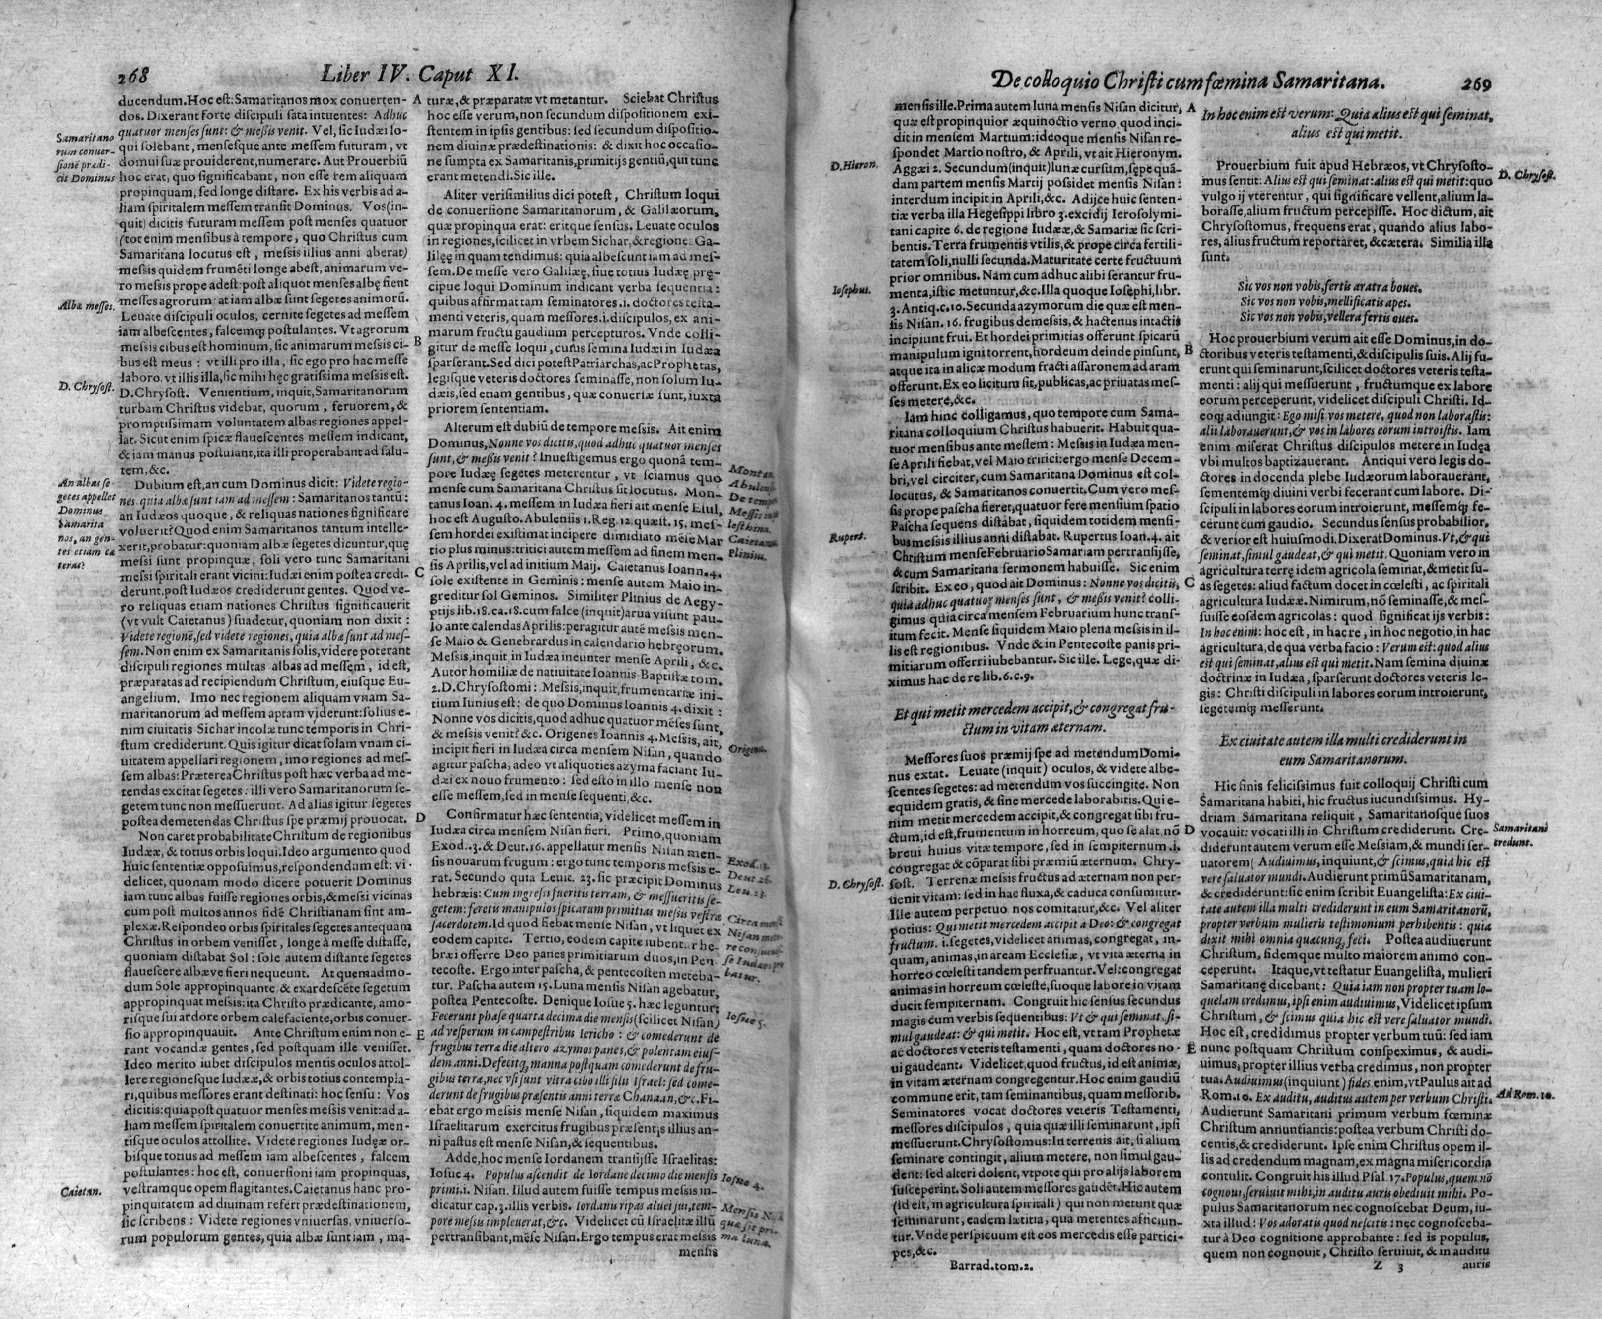 268
Liber IV. Caput XI.
ducendum. Hoc est: Samaritanos mox conuerten-
dos. Dixerant forte discipuli sata intuentes: Adhuc
quatuor menses sunt: & messis venit. Vel, sic Iudæi lo-
qui solebant, mensesque ante messem futuram, vt
domui suæ prouiderent, numerare. Aut Prouerbiũ
hoc erat, quo significabant, non esse rem aliquam
propinquam, sed longe distare. Ex his verbis ad a-
liam spiritalem messem transit Dominus. Vos (in-
quit) dicitis futuram messem post menses quatuor
(tot enim mensibus à tempore, quo Christus cum
Samaritana locutus est, messis illius anni aberat)
messis quidem frumẽti longe abest, animarum ve-
ro messis prope adest: post aliquot menses albę fient
messes agrorum: at iam albæ sunt segetes animorũ.
Leuate discipuli oculos, cernite segetes ad messem
iam albescentes, falcemq; postulantes. Vt agrorum
messis cibus est hominum, sic animarum messis ci-
bus est meus: vt illi pro illa, sic ego pro hac messe
laboro. vt illis illa, sic mihi hęc gratissima messis est.
D. Chrysost. Venientium, inquit, Samaritanorum
turbam Christus videbat, quorum, feruorem, &
promptissimam voluntatem albas regiones appel-
lat. Sicut enim spicæ flauescentes messem indicant,
& iam manus postulant, ita illi properabant ad salu-
tem, &c.
Dubium est, an cum Dominus dicit: Videte regio-
nes, quia albæ sunt iam ad messem: Samaritanos tantũ:
an Iudæos quoque, & reliquas nationes significare
voluerit? Quod enim Samaritanos tantum intelle-
xerit, probatur: quoniam albæ segetes dicuntur, quę
messi sunt propinquæ, soli vero tunc Samaritani
messi spiritali erant vicini: Iudæi enim postea credi-
derunt, post Iudæos crediderunt gentes. Quod ve-
ro reliquas etiam nationes Christus significauerit
(vt vult Caietanus) suadetur, quoniam non dixit:
Videte regionẽ, sed videte regiones, quia albæ sunt ad mes-
sem. Non enim ex Samaritanis solis, videre poterant
discipuli regiones multas albas ad messem, id est,
præparatas ad recipiendum Christum, eiusque Eu-
angelium. Imo nec regionem aliquam vnam Sa-
maritanorum ad messem aptam viderunt: solius e-
nim ciuitatis Sichar incolæ tunc temporis in Chri-
stum crediderunt. Quis igitur dicat solam vnam ci-
uitatem appellari regionem, imo regiones ad mes-
sem albas: Præterea Christus post hæc verba ad me-
tendas excitat segetes: illi vero Samaritanorum se-
getem tunc non messuerunt. Ad alias igitur segetes
postea demetendas Christus spe præmij prouocat.
Non caret probabilitate Christum de regionibus
Iudææ, & totius orbis loqui. Ideo argumento quod
huic sententiæ opposuimus, respondendum est: vi-
delicet, quonam modo dicere potuerit Dominus
iam tunc albas fuisse regiones orbis, & messi vicinas
cum post multos annos fidẽ Christianam sint am-
plexæ. Respondeo orbis spiritales segetes antequam
Christus in orbem venisset, longe à messe distasse,
quoniam distabat Sol: sole autem distante segetes
flauescere albæve fieri nequeunt. At quemadmo-
dum Sole appropinquante & exardescẽte segetum
appropinquat messis: ita Christo prædicante, amo-
risque sui ardore orbem calefaciente, orbis conuer-
sio appropinquauit. Ante Christum enim non e-
rant vocandæ gentes, sed postquam ille venisset.
Ideo merito iubet discipulos mentis oculos attol-
lere regionesque Iudææ, & orbis totius contempla-
ri, quibus messores erant destinati: hoc sensu: Vos
dicitis: quia post quatuor menses messis venit: ad a-
liam messem spiritalem conuertite animum, men-
tisque oculos attollite. Videte regiones Iudęæ or-
bisque totius ad messem iam albescentes, falcem
postulantes: hoc est, conuersioni iam propinquas,
vestramque opem flagitantes. Caietanus hanc pro-
pinquitatem ad diuinam refert prædestinationem,
sic scribens: Videte regiones vniuersas, vniuerso-
rum populorum gentes, quia albæ sunt iam, ma-
Samaritano
rum conuer-
sionẽ prædi-
cit Dominus
Albæ messes.
D. Chrysost.
An albas se-
getes appellet
Dominus
Samarita
nos, an gen-
tes etiam cæ
teras?
Caietan.
A
B
C
D
E
turæ, & præparatæ vt metantur. Sciebat Christus
hoc esse verum, non secundum dispositionem exi-
stentem in ipsis gentibus: sed secundum dispositio-
nem diuinæ prædestinationis: & dixit hoc occasio-
ne sumpta ex Samaritanis, primitijs gentiũ, qui tunc
erant metendi. Sic ille.
Aliter verisimilius dici potest, Christum loqui
de conuersione Samaritanorum, & Galilæorum,
quæ propinqua erat: eritque sensus. Leuate oculos
in regiones, scilicet in vrbem Sichar, & regione Ga-
lilęę in quam tendimus: quia albescunt iam ad mes-
sem. De messe vero Galilææ, siue totius Iudææ prę-
cipue loqui Dominum indicant verba sequentia:
quibus affirmat tam seminatores .i. doctores testa-
menti veteris, quam messores .i. discipulos, ex ani-
marum fructu gaudium percepturos. Vnde colli-
gitur de messe loqui, cuius semina Iudæi in Iudæa
sparserant. Sed dici potest Patriarchas, ac Prophetas,
legisque veteris doctores seminasse, non solum Iu-
dæis, sed etiam gentibus, quæ conuersæ sunt, iuxta
priorem sententiam.
Alterum est dubiũ de tempore messis. Ait enim
Dominus, Nonne vos dicitis, quod adhuc quatuor menses
sunt, & messis venit? Inuestigemus ergo quonã tem-
pore Iudææ segetes meterentur, vt sciamus quo
mense cum Samaritana Christus sit locutus. Mon-
tanus Ioan. 4. messem in Iudæa fieri ait mense Elul,
hoc est Augusto. Abulensis 1. Reg. 12. quæst. 15. mes-
sem hordei existimat incipere dimidiato mẽse Mar
tio plus minus: tritici autem messem ad finem men-
sis Aprilis, vel ad initium Maij. Caietanus Ioann. 4.
sole existente in Geminis: mense autem Maio in-
greditur sol Geminos. Similiter Plinius de Aegy-
ptijs lib. 18. ca. 18. cum falce (inquit) arua visunt pau-
lo ante calendas Aprilis: peragitur autẽ messis men-
se Maio & Genebrardus in calendario hebręorum.
Messis, inquit in Iudæa ineunter mense Aprili, &c.
Autor homiliæ de natiuitate Ioannis Baptistæ tom.
2. D. Chrysostomi: Messis, inquit, frumentariæ ini-
tium Iunius est: de quo Dominus Ioannis 4. dixit:
Nonne vos dicitis, quod adhuc quatuor mẽses sunt,
& messis venit? &c. Origenes Ioannis 4. Messis, ait,
incipit fieri in Iudæa circa mensem Nisan, quando
agitur pascha, adeo vt aliquoties azyma faciant Iu-
dæi ex nouo frumento: sed esto in illo mense non
esse messem, sed in mense sequenti, &c.
Confirmatur hæc sententia, videlicet messem in
Iudæa circa mensem Nisan fieri. Primo, quoniam
Exod. 13. & Deut. 16. appellatur mensis Nisan men-
sis nouarum frugum: ergo tunc temporis messis e-
rat. Secundo quia Leuit. 23. sic præcipit Dominus
hebræis: Cum ingressi fueritis terram, & messueritis se-
getem: feretis manipulos spicarum primitias messis vestræ
sacerdotem. Id quod fiebat mense Nisan, vt liquet ex
eodem capite. Tertio, eodem capite iubentur he-
bræi offerre Deo panes primitiarum duos, in Pen
tecoste. Ergo inter pascha, & pentecosten meteba-
tur. Pascha autem 15. Luna mensis Nisan agebatur,
postea Pentecoste. Denique Iosue 5. hæc leguntur:
Fecerunt phase quarta decima die mensis (scilicet Nisan)
ad vesperum in campestribus Iericho: & comederunt de
frugibus terræ die altero azymos panes, & polentam eius-
dem anni. Defecitq; manna postquam comederunt de fru-
gibus terræ, nec vsi sunt vltra cibo illi filii Israel: sed come-
derunt de frugibus præsentis anni terræ Chanaan, &c. Fi-
ebat ergo messis mense Nisan, siquidem maximus
Israelitarum exercitus frugibus præsentis illius an-
ni pastus est mense Nisan, & sequentibus.
Adde, hoc mense Iordanem transisse Israelitas:
Iosue 4. Populus ascendit de Iordane decimo die mensis
primi .i. Nisan. Illud autem fuisse tempus messis in-
dicatur cap. 3. illis verbis. Iordanus ripas aluei sui, tem-
pore messis impleuerat, &c. Videlicet cũ Israelitæ illũ
pertransibant, mẽse Nisan. Ergo tempus erat messis
mensis
Montan.
Caietanus
Plinius.
Origenes.
Exod. 13.
Iosue 5.
Iosue 4.
De colloquio Christi cum fœmina Samaritana.
269
mensis ille. Prima autem luna mensis Nisan dicitur,
quæ est propinquior æquinoctio verno quod inci-
dit in mensem Martium: ideoque mensis Nisan re-
spondet Martio nostro, & Aprili, vt ait Hieronym.
Aggæi 2. Secundum (inquit) lunæ cursum, sępe quã-
dam partem mensis Martij possidet mensis Nisan:
interdum incipit in Aprili, &c. Adijce huic senten-
tiæ verba illa Hegesippi libro 3. excidij Ierosolymi-
tani capite 6. de regione Iudææ, & Samariæ sic scri-
bentis. Terra frumentis vtilis, & prope circa fertili-
tatem soli, nulli secunda. Maturitate certe fructuum
prior omnibus. Nam cum adhuc alibi serantur fru-
menta, istic metuntur, &c. Illa quoque Iosephi, libr.
3. Antiq. c. 10. Secunda azymorum die quæ est men-
sis Nisan. 16. frugibus demessis, & hactenus intactis
incipiunt frui. Et hordei primitias offerunt spicarũ
manipulum igni torrent, hordeum deinde pinsunt,
atque ita in alicæ modum fracti assaronem ad aram
offerunt. Ex eo licitum sit, publicas, ac priuatas mes-
ses metere, &c.
Iam hinc colligamus, quo tempore cum Sama-
ritana colloquium Christus habuerit. Habuit qua-
tuor mensibus ante messem: Messis in Iudæa men-
se Aprili fiebat, vel Maio tritici: ergo mense Decem-
bri, vel circiter, cum Samaritana Dominus est col-
locutus, & Samaritanos conuertit. Cum vero mes-
sis prope pascha fieret, quatuor fere mensium spatio
Pascha sequens distabat, siquidem totidem mensi-
bus messis illius anni distabat. Rupertus Ioan. 4. ait
Christum mense Februario Samariam pertransisse,
& cum Samaritana sermonem habuisse. Sic enim
scribit. Ex eo, quod ait Dominus: Nonne vos dicitis,
quia adhuc quatuor menses sunt, & messis venit? colli-
gimus quia circa mensem Februarium hunc trans-
itum fecit. Mense siquidem Maio plena messis in il-
lis est regionibus. Vnde & in Pentecoste panis pri-
mitiarum offerri iubebantur. Sic ille. Lege, quæ di-
ximus hac de re lib. 6. c. 9.
Et qui metit mercedem accipit, & congregat fru-
ctum in vitam æternam.
Messores suos præmij spe ad metendum Domi-
nus extat. Leuate (inquit) oculos, & videte albe-
scentes segetes: ad metendum vos succingite. Non
equidem gratis, & sine mercede laborabitis. Qui e-
nim metit mercedem accipit, & congregat sibi fru-
ctum, id est, frumentum in horreum, quo se alat, nõ
breui huius vitæ tempore, sed in sempiternum .i.
congregat & cõparat sibi præmiũ æternum. Chry-
sost. Terrenæ messis fructus ad æternam non per-
uenit vitam: sed in hac fluxa, & caduca consumitur.
Ille autem perpetuo nos comitatur, &c. Vel aliter
potius: Qui metit mercedem accipit à Deo: & congregat
fructum .i. segetes, videlicet animas, congregat, in-
quam, animas, in aream Ecclesiæ, vt vita æterna in
horreo cœlesti tandem perfruantur. Vel: congregat
animas in horreum cœleste, suoque labore in vitam
ducit sempiternam. Congruit hic sensus secundus
magis cum verbis sequentibus: Vt & qui seminat, si-
mul gaudeat: & qui metit. Hoc est, vt tam Prophetæ
ac doctores veteris testamenti, quam doctores no-
ui gaudeant. Videlicet, quod fructus, id est animæ,
in vitam æternam congregentur. Hoc enim gaudiũ
commune erit, tam seminantibus, quam messorib.
Seminatores vocat doctores veteris Testamenti,
messores discipulos, quia quæ illi seminarunt, ipsi
messuerunt. Chrysostomus: In terrenis ait, si alium
seminare contingit, alium metere, non simul gau-
dent: sed alteri dolent, vtpote qui pro alijs laborem
susceperint. Soli autem messores gaudẽt. Hic autem
(id est, in agricultura spiritali) qui non metunt quæ
seminarunt, eadem lætitia, qua metentes afficiun-
tur. Vnde perspicuum est eos mercedis esse partici-
pes, &c.
Barrad. tom. 2.
D. Hieron.
Iosephus.
Rupert.
D. Chrysost.
A
B
C
D
E
In hoc enim est verum: Quia alius est qui seminat,
alius est qui metit.
Prouerbium fuit apud Hebræos, vt Chrysosto-
mus sentit: Alius est qui seminat: alius est qui metit: quo
vulgo ij vterentur, qui significare vellent, alium la-
borasse, alium fructum percepisse. Hoc dictum, ait
Chrysostomus, frequens erat, quando alius labo-
res, alius fructum reportaret, & cætera. Similia illa
sunt.
Sic vos non vobis, fertis aratra boues.
Sic vos non vobis, mellificatis apes.
Sic vos non vobis, vellera fertis oues.
Hoc prouerbium verum ait esse Dominus, in do-
ctoribus veteris testamenti, & discipulis suis. Alij fu-
erunt qui seminarunt, scilicet doctores veteris testa-
menti: alij qui messuerunt, fructumque ex labore
eorum perceperunt, videlicet discipuli Christi. Id-
eoq; adiungit: Ego misi vos metere, quod non laborastis:
alii laborauerunt, & vos in labores eorum introistis. Iam
enim miserat Christus discipulos metere in Iudęa
vbi multos baptizauerant. Antiqui vero legis do-
ctores in docenda plebe Iudæorum laborauerant,
sementemq; diuini verbi fecerant cum labore. Di-
scipuli in labores eorum introierunt, messemq; fe-
cerunt cum gaudio. Secundus sensus probabilior,
& verior est huiusmodi. Dixerat Dominus. Vt, & qui
seminat, simul gaudeat, & qui metit. Quoniam vero in
agricultura terrę idem agricola seminat, & metit su-
as segetes: aliud factum docet in cœlesti, ac spiritali
agricultura Iudææ. Nimirum, nõ seminasse, & mes-
suisse eosdem agricolas: quod significat ijs verbis:
In hoc enim: hoc est, in hac re, in hoc negotio, in hac
agricultura, de qua verba facio: Verum est: quod alius
est qui seminat, alius est qui metit. Nam semina diuinæ
doctrinæ in Iudæa, sparserunt doctores veteris le-
gis: Christi discipuli in labores eorum introierunt,
segetemq; messerunt.
Ex ciuitate autem illa multi crediderunt in
eum Samaritanorum.
Hic finis felicissimus fuit colloquij Christi cum
Samaritana habiti, hic fructus iucundissimus. Hy-
driam Samaritana reliquit, Samaritanosque suos
vocauit: vocati illi in Christum crediderunt. Cre-
diderunt autem verum esse Messiam, & mundi ser-
uatorem (Audiuimus, inquiunt, & scimus, quia hic est
vere saluator mundi. Audierunt primũ Samaritanam,
& crediderunt: sic enim scribit Euangelista: Ex ciui-
tate autem illa multi crediderunt in eum Samaritanorũ,
propter verbum mulieris testimonium perhibentis: quia
dixit mihi omnia quacunq; feci. Postea audiuerunt
Christum, fidemque multo maiorem animo con-
ceperunt. Itaque, vt testatur Euangelista, mulieri
Samaritanę dicebant: Quia iam non propter tuam lo-
quelam credimus, ipsi enim audiuimus, Videlicet ipsum
Christum, & scimus quia hic est vere saluator mundi.
Hoc est, credidimus propter verbum tuũ: sed iam
nunc postquam Christum conspeximus, & audi-
uimus, propter illius verba credimus, non propter
tua. Audiuimus (inquiunt) fides enim, vt Paulus ait ad
Rom. 10. Ex auditu, auditus autem per verbum Christi.
Audierunt Samaritani primum verbum fœminæ
Christum annuntiantis: postea verbum Christi do-
centis, & crediderunt. Ipse enim Christus opem il-
lis ad credendum magnam, ex magna misericordia
contulit. Congruit his illud Psal. 17. Populus, quem nõ
cognoui, seruiuit mihi, in auditu auris obediuit mihi. Po-
pulus Samaritanorum nec cognoscebat Deum, iu-
xta illud: Vos adoratis quod nescitis: nec cognosceba-
tur à Deo cognitione approbante: sed is populus,
quem non cognouit, Christo seruiuit, & in auditu
Z 3
auris
D. Chrysost.
Samaritani
credunt.
Ad Rom. 10.